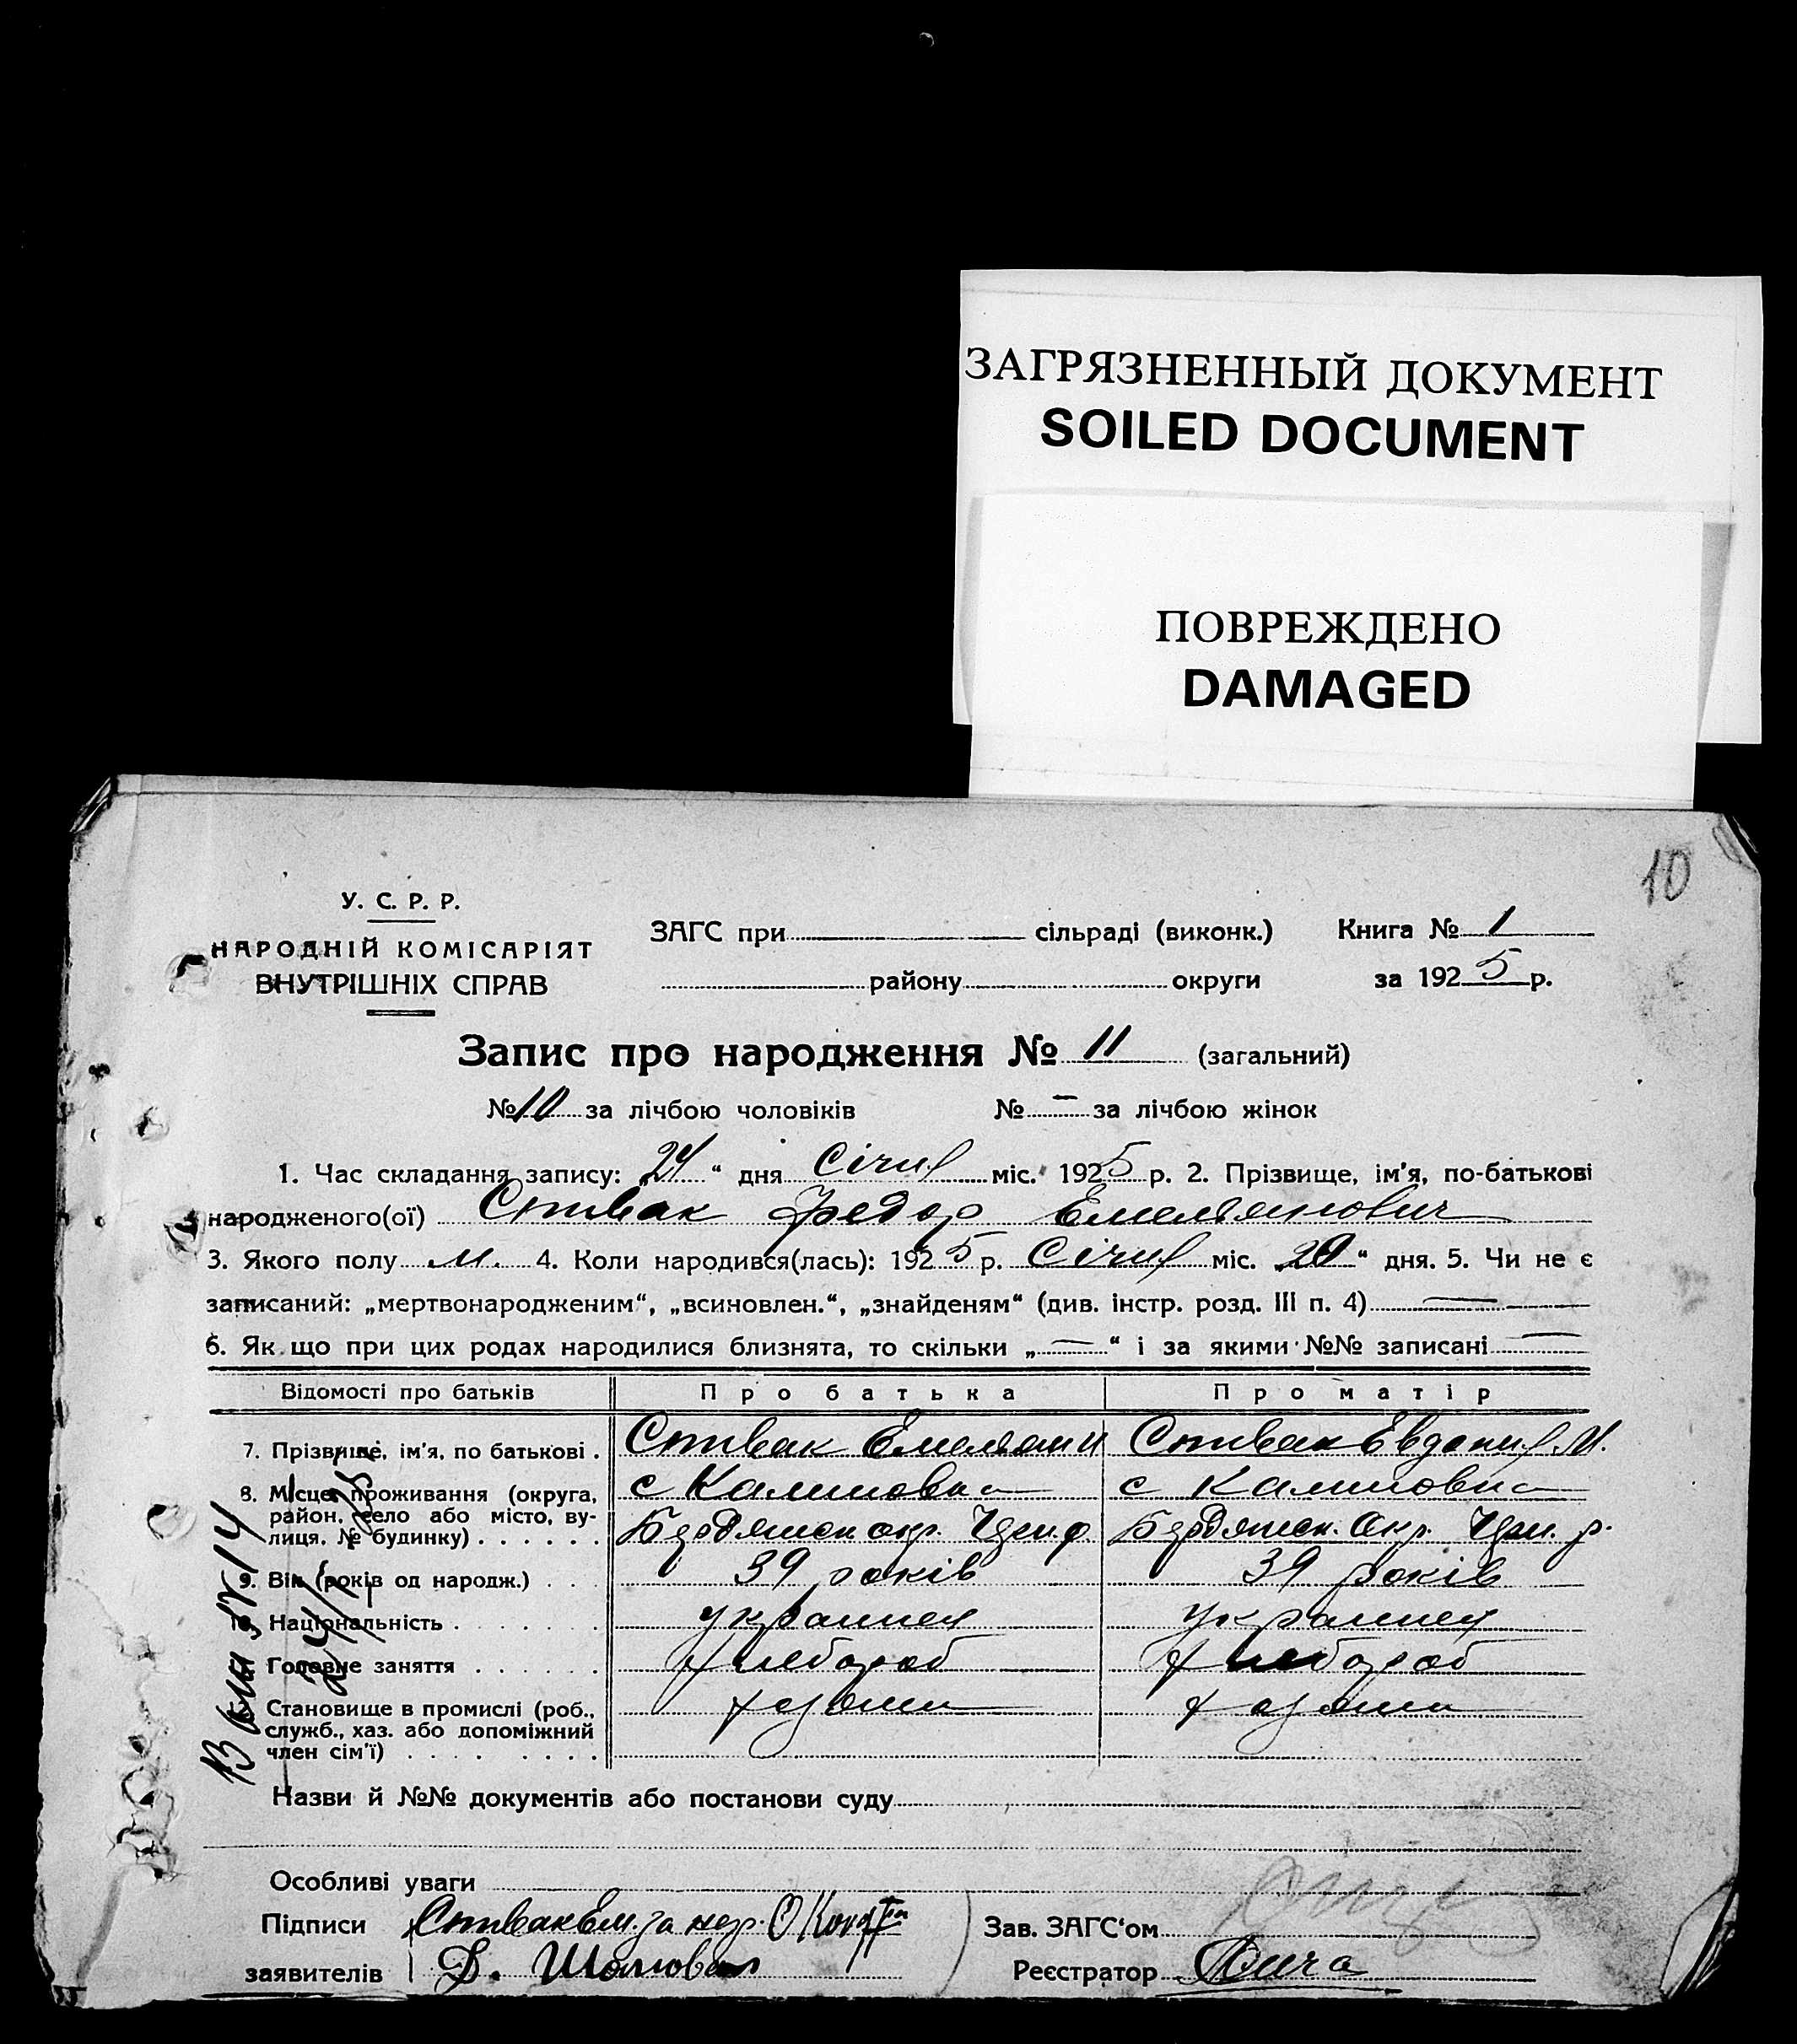 ЗАГРЯЗНЕННЫЙ ДОКУМЕНТ
SOILED DOCUMENT
ПОВРЕЖДЕНО
DAMAGED
10
У. С. Р. Р.
НАРОДНІЙ КОМІСАРІЯТ
ВНУТРІШНІХ СПРАВ
ЗАГС при сільраді (виконк.) Книга № 1
району округи за 1925 р.
Запис про народження № 11 (загальний)
№ 10 за лічбою чоловіків № — за лічбою жінок
1. Час складання запису: „24“ дня Січня міс. 1925 р. 2. Прізвище, ім'я, по-батькові
народженого(ої) Співак Федор Емельянович
3. Якого полу м. 4. Коли народився(лась): 1925 р. Січня міс. „20“ дня. 5. Чи не є
записаний: „мертвонародженим“, „всиновлен.“, „знайденям“ (див. інстр. розд. III п. 4) —
6. Як що при цих родах народилися близнята, то скільки „—“ і за якими №№ записані —
Відомості про батьків Про батька Про матір
7. Прізвище, ім'я, по батькові . Співак Емельян И Співак Евдокия М.
8. Місце проживання (округа, с Калиновка с Калиновка
район, село або місто, ву-
лиця, № будинку) . . . . . . Бердянск окр. Бердянск. окр.
9. Вік (років од народж.) . . . 39 років 39 років
10. Національність . . . . . . . украинец украинец
Головне заняття . . . . . . хлебороб хлебороб
Становище в промислі (роб., хозяин хозяин
служб., хаз. або допоміжний
член сім'ї) . . . . . . . .
Назви й №№ документів або постанови суду
Особливі уваги
Підписи Співак Ем. за нег.
Зав. ЗАГС'ом
заявителів Д. Шаповал
Реєстратор